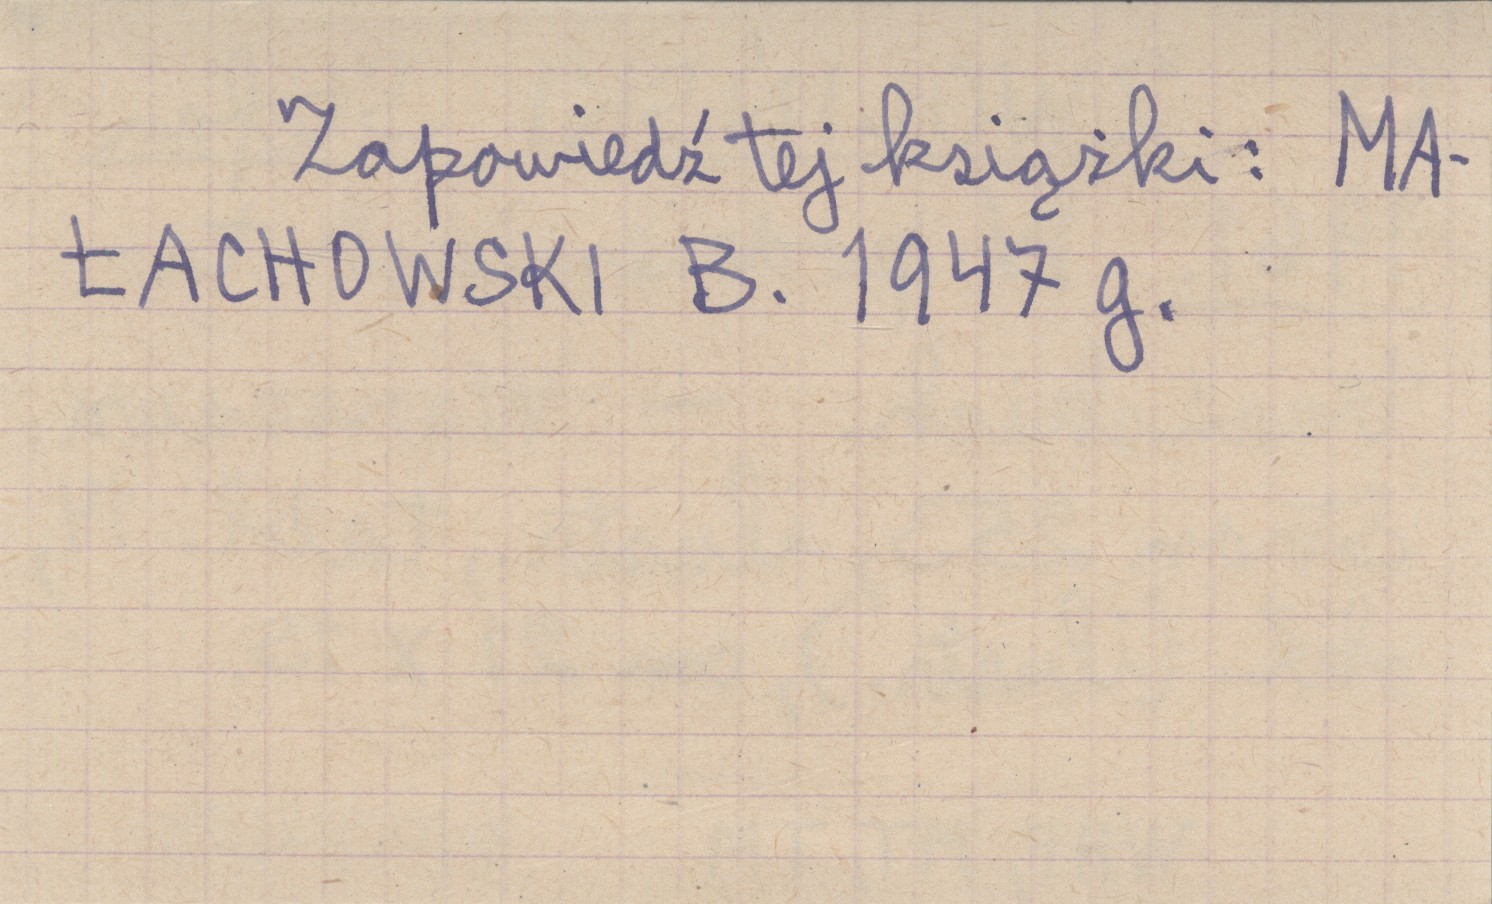 Zapowiedź tej książki: MA-
ŁACHOWSKI B. 1947 g.